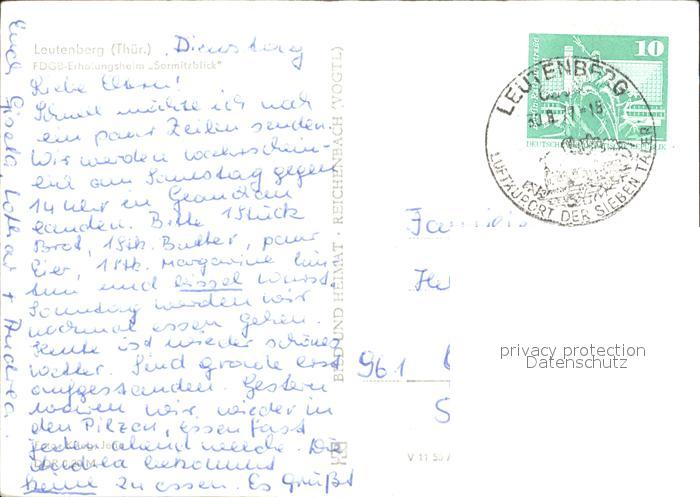 Leutenberg (Thür.)
FDGB-Erholungsheim „Sormitzblick"
Dienstag
Liebe Eltern!
Schnell möchte ich noch
ein paar Zeilen senden
Wir werden wahrschein-
lich am Samstag gegen
14 Uhr in
landen. Bitte 1 Stück
Brot, 1 Stk. Butter, paar
Eier, 1 Stk. Margarine hin
tun und bissel Wurst.
Sonntag werden wir
nochmal essen gehen.
Heute ist wieder schönes
Wetter. Sind grade erst
aufgestanden. Gestern
waren wir wieder in
den Pilzen, essen fast
jeden Abend welche. Die
Andrea bekommt
keine zu essen. Es Grüßt
Euch Gisela, Lothar + Andrea.
BILD UND HEIMAT · REICHENBACH (VOGTL)
10
LEUTENBERG
30.8.77-15
LUFTKURORT DER SIEBEN TÄLER
Familie
961
V 11 50
privacy protection
Datenschutz